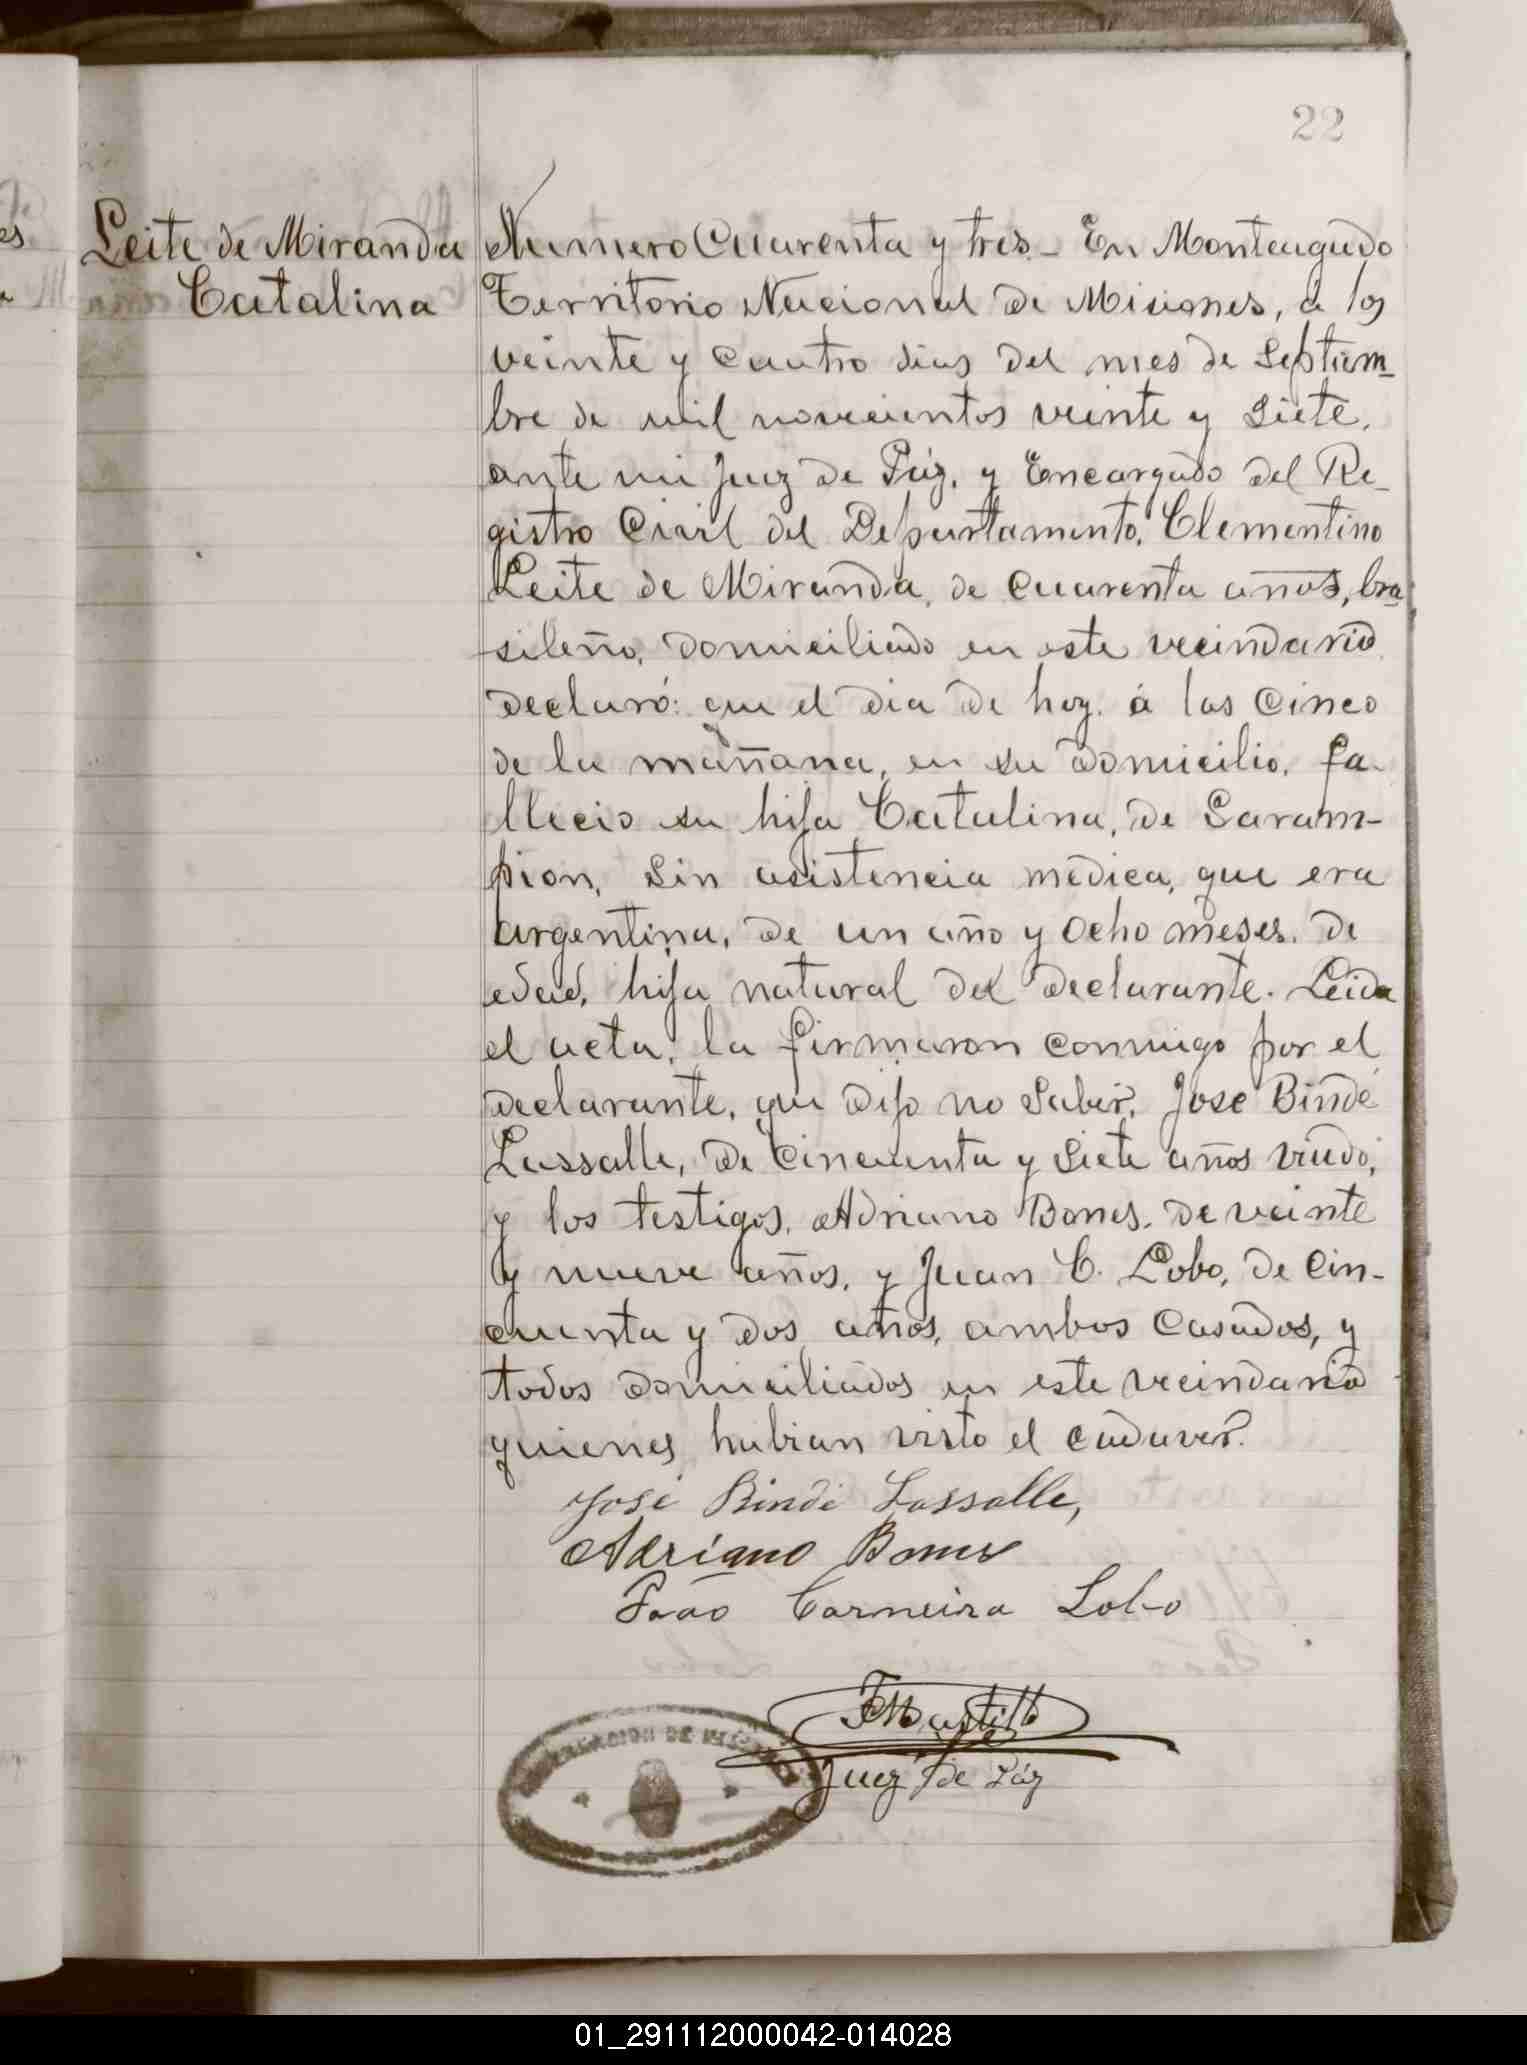 22
Leite de Miranda
Catalina
Numero Cuarenta y tres.- En Monteagudo
Territorio Nacional de Misiones, á los
veinte y cuatro dias del mes de Septiem-
bre de mil novecientos veinte y siete,
ante mi Juez de Páz, y Encargado del Re-
gistro Civil del Departamento, Clementino
Leite de Miranda, de cuarenta años, bra
sileño, domiciliado en este vecindario
declaró: que el dia de hoy, á las cinco
de la mañana, en su domicilio, fa-
llecio su hija Catalina, de Saram-
pion, sin asistencia médica, que era
argentina, de un año y ocho meses, de
edad, hija natural del declarante. Leida
el acta, la firmaron conmigo por el
declarante, que dijo no saber, José Bindé
Lassalle, de cincuenta y siete años viudo,
y los testigos, Adriano Bones, de veinte
y nueve años, y Juan C. Lobo, de cin-
cuenta y dos años, ambos casados, y
todos domiciliados en este vecindario
quienes habian visto el cadaver.
José Bindé Lassalle,
Adriano Bones
João Carneira Lobo
Juez de Páz
01_291112000042-014028